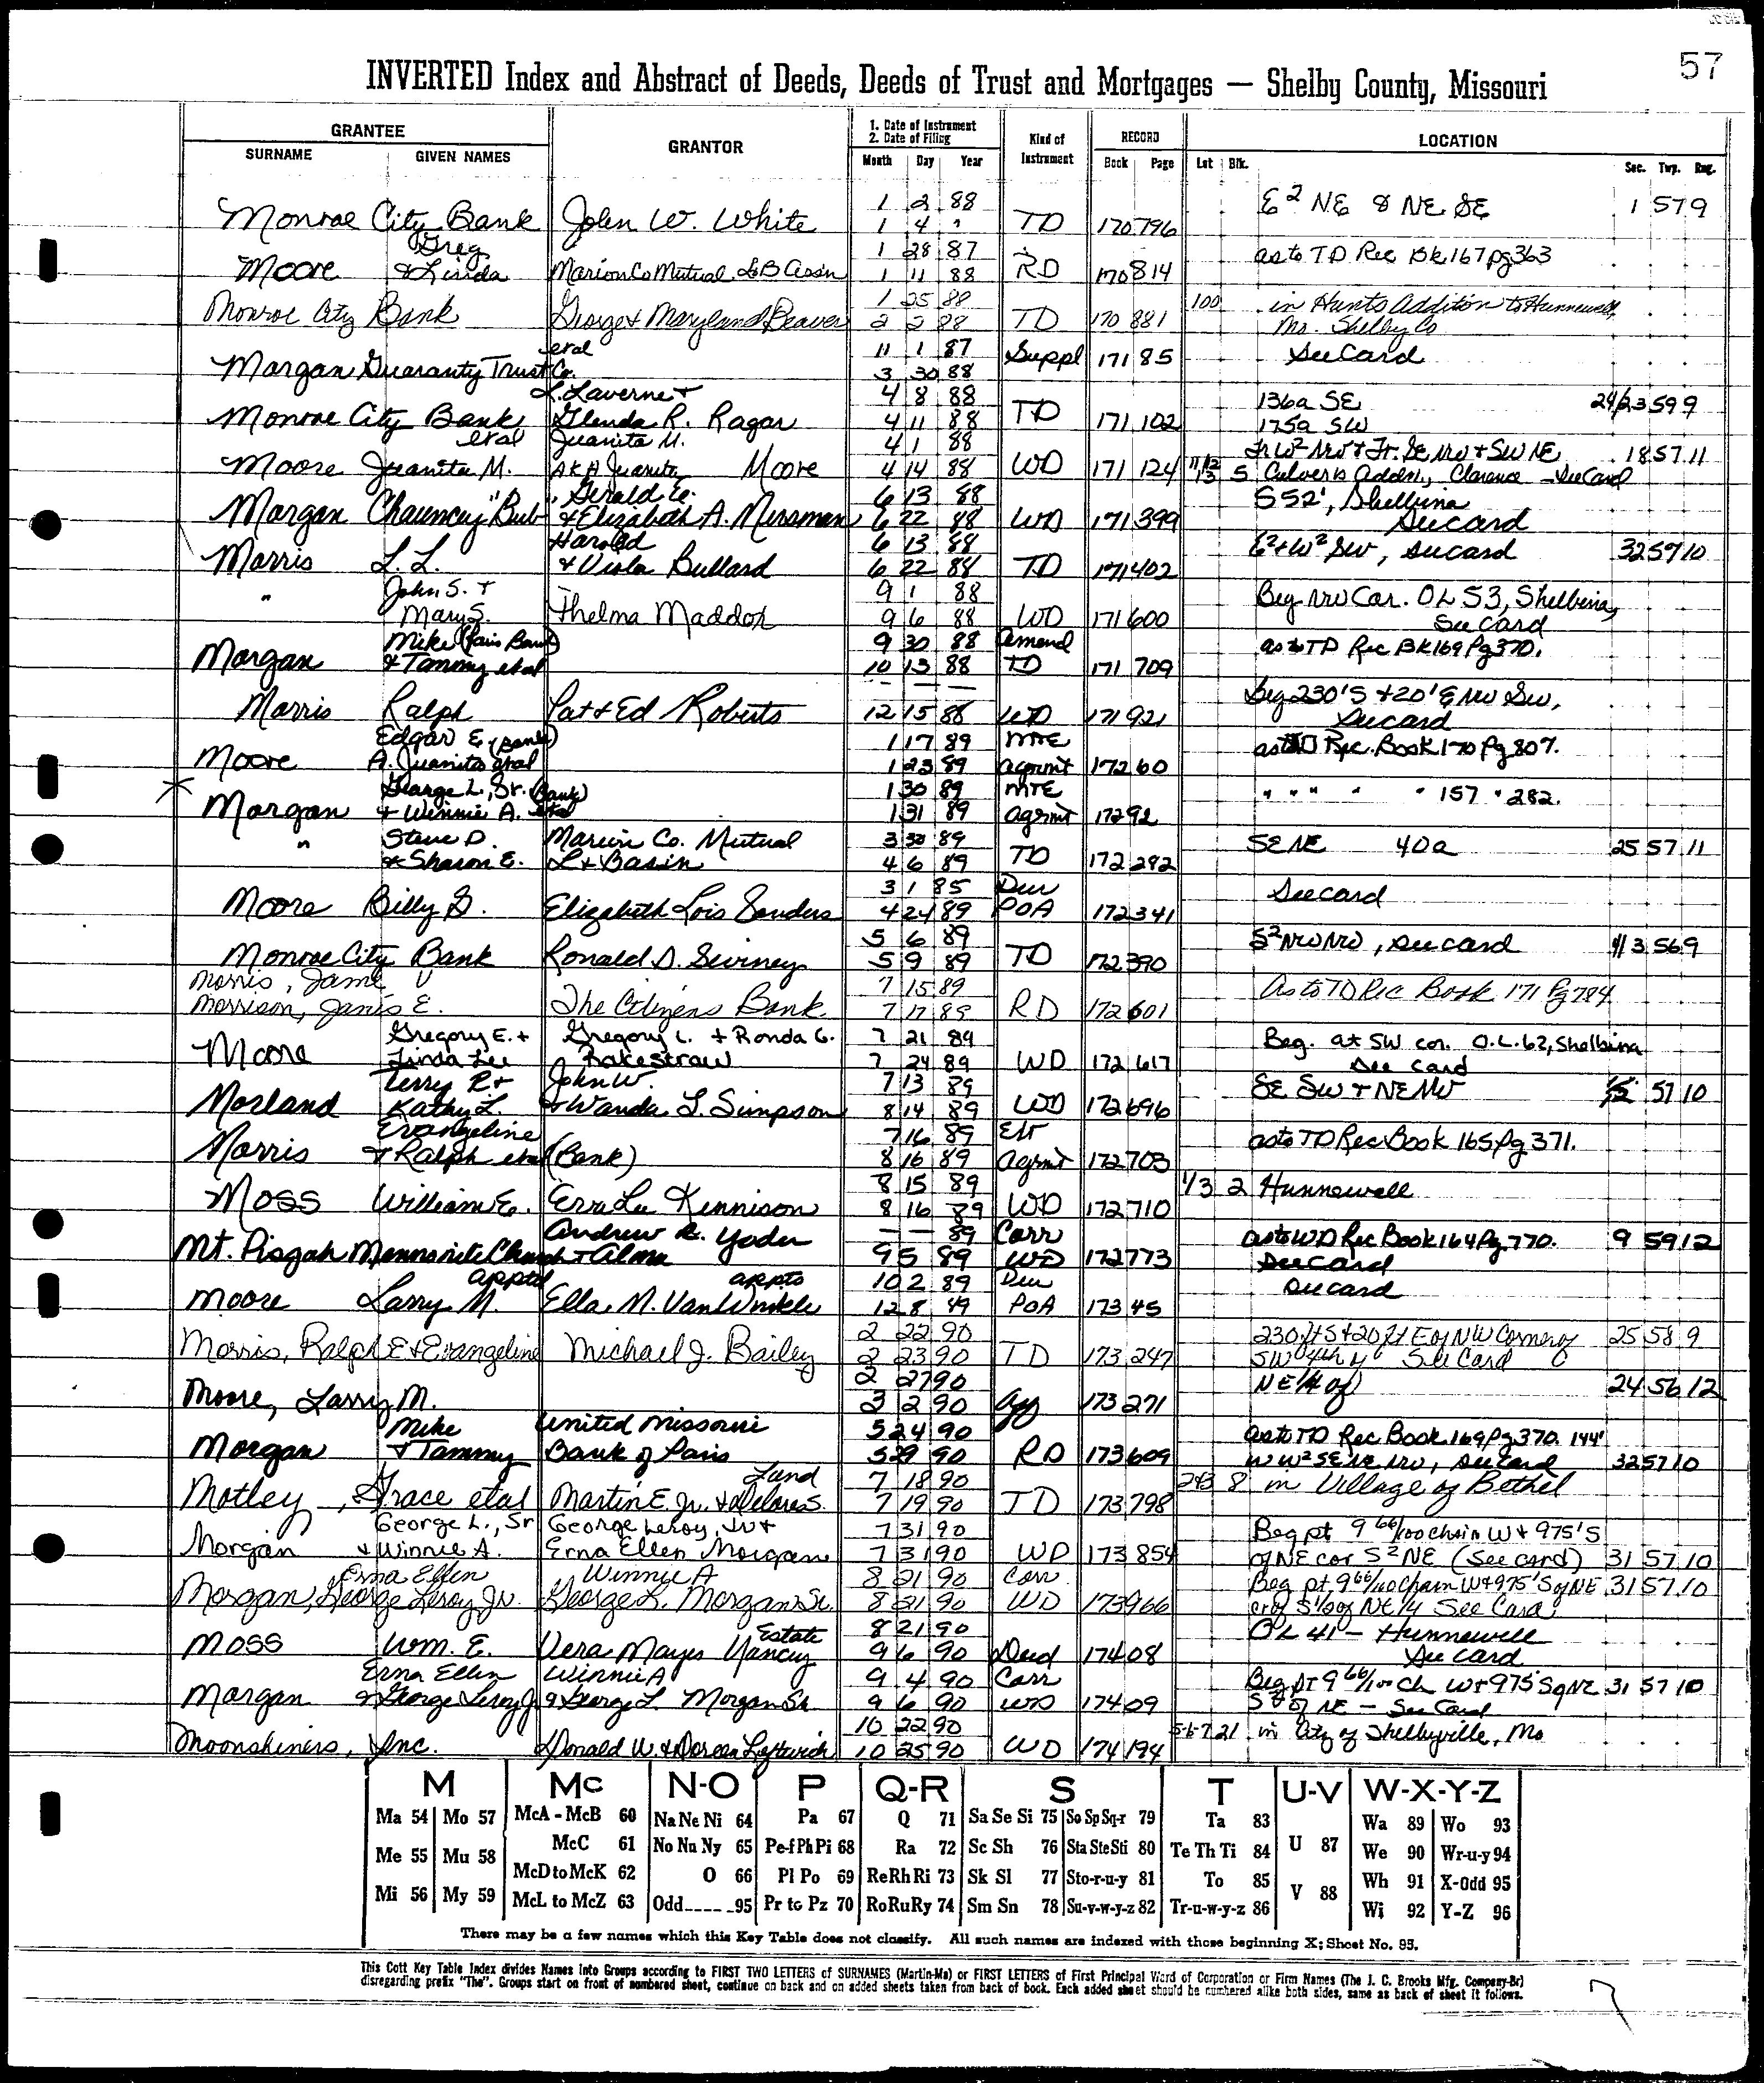 57
INVERTED Index and Abstract of Deeds, Deeds of Trust and Mortgages — Shelby County, Missouri
GRANTEE GRANTOR 1. Date of Instrument 2. Date of Filing Kind of Instrument RECORD LOCATION
SURNAME GIVEN NAMES Month Day Year Book Page Lot Blk. Sec. Twp. Rng.
1 2 88 E2 NE & NE SE 1 57 9
Monroe City Bank John W. White 1 4 " TD 170 796
Greg 1 28 87 as to TD Rec Bk 167 pg 363
Moore & Linda Marion Co Mutual L&B Assn 1 11 88 RD 170 814
1 25 88 100 in Hunts Addition to Hunnewell,
Monroe City Bank George & Maryland Beaver 2 2 88 TD 170 881 Mo. Shelby Co
etal 11 1 87 Suppl 171 85 See Card
Morgan Guaranty Trust Co. 3 30 88
L. Laverne + 4 8 88 136a SE 24/23 59 9
Monroe City Bank Glenda R. Ragar 4 11 88 TD 171 102 175a SW
etal Juanita M. 4 1 88 Fr W2 NW & Fr. SE NW & SW NE 18 57 11
Moore Juanita M. AKA Juanita Moore 4 14 88 WD 171 124 11/12 13 5 Culvers Addn., Clarence - See Card
Gerald E. 6 13 88 S 52', Shelbina
Morgan Chauncey "Bub" & Elizabeth A. Messman 6 22 88 WD 171 399 See card
Harold 6 13 88 E2 & W2 SW, See card 32 57 10
Morris L. L. & Viola Bullard 6 22 88 TD 171 402
John S. + 9 1 88 Beg NW Cor. OL 53, Shelbina,
" Mary S. Thelma Maddox 9 6 88 WD 171 600 See Card
Mike (Paris Bank) 9 30 88 Amend as to TD Rec Bk 169 Pg 370.
Morgan & Tammy etal 10 13 88 TD 171 709
— — — Beg 230'S + 20'E NW SW,
Morris Ralph Pat + Ed Roberts 12 15 88 WD 171 921 See card
Edgar E. (Bank) 1 17 89 MTE as to TD Rec. Book 170 Pg 807.
Moore A. Juanita etal 1 23 89 agrmt 172 60
George L., Sr. (Bank) 1 30 89 MTE " " " " " 157 " 282.
Morgan + Winnie A. etal 1 31 89 agrmt 172 92
Steve D. Marion Co. Mutual 3 30 89 SE NE 40a 25 57 11
" & Sharon E. L & B assn 4 6 89 TD 172 282
3 1 85 Dur See card
Moore Billy G. Elizabeth Lois Sanders 4 24 89 POA 172 341
5 6 89 S2 NW NW, See card 11/13 56 9
Monroe City Bank Ronald D. 5 9 89 TD 172 390
Morris, Jame 7 15 89 As to TD Rec Book 171 Pg 784
Morrison, Janis E. The Citizens Bank 7 17 89 RD 172 601
Gregory E. + Gregory L. + Ronda G. 7 21 89 Beg. at SW cor. O.L. 62, Shelbina
Moore Linda Lee Rakestraw 7 24 89 WD 172 617 See card
Terry R + John W. 7 13 89 SE SW + NE NW 57 10
Morland Kathy L. + Wanda L. Simpson 8 14 89 WD 172 696
Evangeline 7 16 89 Ext as to TD Rec Book 165 Pg 371.
Morris + Ralph etal (Bank) 8 16 89 agrmt 172 703
8 15 89 1/3 2 Hunnewell
Moss William E. Erra Lee Kennison 8 16 89 WD 172 710
Andrew R. Yoder — — 89 Corr as to WD Rec Book 164 Pg. 770. 9 59 12
Mt. Pisgah Mennonite Church + Alma 9 5 89 WD 172 773 See Card
apptd appto 10 2 89 Dur See card
Moore Larry M. Ella M. VanWinkle 12 8 49 POA 173 45
2 22 90 230 ft S + 20 ft E of NW Corner of 25 58 9
Morris, Ralph E & Evangeline Michael J. Bailey 2 23 90 TD 173 247 SW 4th See Card
2 27 90 NE 1/4 of 24 56 12
Moore, Larry M. 3 2 90 ag 173 271
Mike United Missouri 5 24 90 as to TD Rec Book 169 Pg 370. 144'
Morgan + Tammy Bank of Paris 5 29 90 RD 173 609 W W2 SE NE NW, See card 32 57 10
Land 7 18 90 2&3 8 in Village of Bethel
Motley, Grace etal Martin E. Jr. & Delores S. 7 19 90 TD 173 798
George L., Sr George Leroy, Jr + 7 31 90 Beg pt 9 66/100 chain W + 975'S
Morgan + Winnie A. Erna Ellen Morgan 7 31 90 WD 173 854 of NE cor S2 NE (See card) 31 57 10
Erna Ellen Winnie A 8 21 90 Corr Beg pt. 9 66/100 Chain W + 975'S of NE 31 57 10
Morgan, George Leroy Jr. George L. Morgan Sr. 8 21 90 WD 173 966 cr of S 1/2 of NE 1/4 See Card
Estate 8 21 90 OL 41 - Hunnewell
Moss Wm. E. Vera Mayes Yancy 9 6 90 Deed 174 08 See Card
Erna Ellen Winnie A 9 4 90 Corr Beg Pt 9 66/100 Ch W + 975'S of NE 31 57 10
Morgan & George Leroy Jr & George L. Morgan Sr 9 6 90 WD 174 09 S 2 of NE — See Card
10 22 90 5-6-7 21 in City of Shelbyville, Mo
Moonshiners, Inc. Donald W. & Doreen Leftwich 10 25 90 WD 174 194
M Mc N-O P Q-R S T U-V W-X-Y-Z
Ma 54 Mo 57 McA - McB 60 Na Ne Ni 64 Pa 67 Q 71 Sa Se Si 75 So Sp Sq-r 79 Ta 83 U 87 Wa 89 Wo 93
Me 55 Mu 58 McC 61 No Nu Ny 65 Pe-f Ph Pi 68 Ra 72 Sc Sh 76 Sta Ste Sti 80 Te Th Ti 84 We 90 Wr-u-y 94
McD to McK 62 O 66 Pl Po 69 Re Rh Ri 73 Sk Sl 77 Sto-r-u-y 81 To 85 V 88 Wh 91 X-Odd 95
Mi 56 My 59 McL to McZ 63 Odd_____95 Pr to Pz 70 Ro Ru Ry 74 Sm Sn 78 Su-v-w-y-z 82 Tr-u-w-y-z 86 Wi 92 Y-Z 96
There may be a few names which this Key Table does not classify. All such names are indexed with those beginning X; Sheet No. 95.
This Cott Key Table Index divides Names into Groups according to FIRST TWO LETTERS of SURNAMES (Martin-Ma) or FIRST LETTERS of First Principal Word of Corporation or Firm Names (The J. C. Brooks Mfg. Company-Br)
disregarding prefix "The". Groups start on front of numbered sheet, continue on back and on added sheets taken from back of book. Each added sheet should be numbered alike both sides, same as back of sheet it follows.